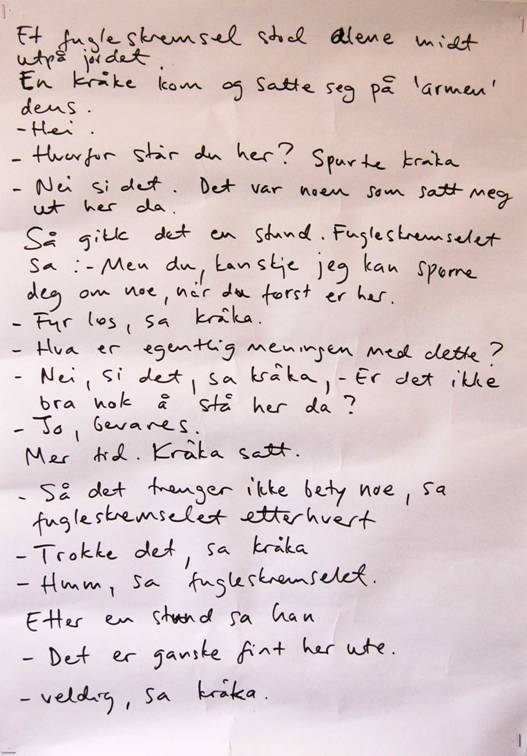 Et fugleskremsel stod alene midt
utpå jordet.
En kråke kom og satte seg på 'armen'
dens.
- Hei.
- Hvorfor står du her? Spurte kråka
- Nei si det. Det var noen som satt meg
ut her da.
Så gikk det en stund. Fugleskremselet
sa :- Men du, kanskje jeg kan spørre
deg om noe, når du først er her.
- Fyr løs, sa kråka.
- Hva er egentlig meningen med dette?
- Nei, si det, sa kråka, - Er det ikke
bra nok å stå her da?
- Jo, bevares.
Mer tid. Kråka satt.
- Så det trenger ikke bety noe, sa
fugleskremselet etterhvert
- Trokke det, sa kråka
- Hmm, sa fugleskremselet.
Etter en stund sa han
- Det er ganske fint her ute.
- veldig, sa kråka.